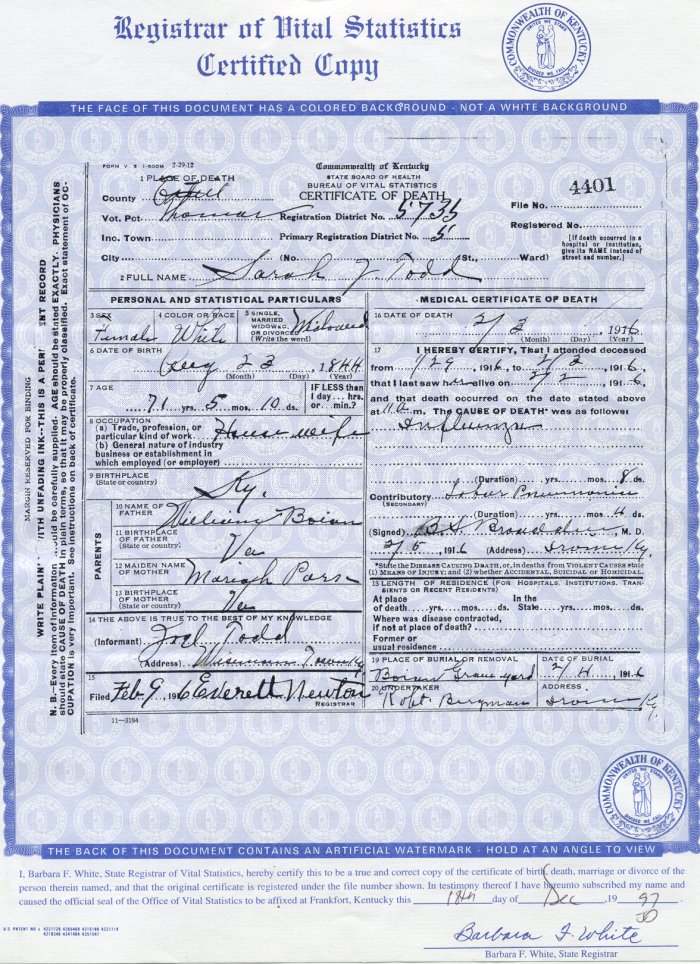 Registrar of Vital Statistics
Certified Copy
COMMONWEALTH OF KENTUCKY
UNITED WE STAND
DIVIDED WE FALL
THE FACE OF THIS DOCUMENT HAS A COLORED BACKGROUND - NOT A WHITE BACKGROUND
FORM V. S. 1-500M 2-29-12
Commonwealth of Kentucky
STATE BOARD OF HEALTH
BUREAU OF VITAL STATISTICS
CERTIFICATE OF DEATH
1 PLACE OF DEATH
County Estill
File No. 4401
Vot. Pct. Thomas Registration District No. 5735
Registered No.
Inc. Town Primary Registration District No. 5
City (No. St., Ward)
[If death occurred in a hospital or institution, give its NAME instead of street and number.]
2 FULL NAME Sarah J Todd
PERSONAL AND STATISTICAL PARTICULARS
3 SEX Female
4 COLOR OR RACE White
5 SINGLE, MARRIED WIDOWED, OR DIVORCED (Write the word) Widowed
6 DATE OF BIRTH Aug 23, 1844
(Month) (Day) (Year)
7 AGE 71 yrs. 5 mos. 10 ds.
IF LESS than 1 day... hrs. or... min.?
8 OCCUPATION
(a) Trade, profession, or particular kind of work House wife
(b) General nature of industry business or establishment in which employed (or employer)
9 BIRTHPLACE
(State or country) Ky.
PARENTS
10 NAME OF FATHER William Boian
11 BIRTHPLACE OF FATHER
(State or country) Va
12 MAIDEN NAME OF MOTHER Mariah
13 BIRTHPLACE OF MOTHER
(State or country) Va
14 THE ABOVE IS TRUE TO THE BEST OF MY KNOWLEDGE
(Informant) Joel Todd
(Address)
15
Filed Feb 9, 1916 Everett Newton
REGISTRAR
11-3184
MEDICAL CERTIFICATE OF DEATH
16 DATE OF DEATH 2/3, 1916
(Month) (Day) (Year)
17 I HEREBY CERTIFY, That I attended deceased
from 1/29, 1916, to 2/3, 1916,
that I last saw her alive on 2/2, 1916
and that death occurred on the date stated above
at m. The CAUSE OF DEATH* was as follows:
Influenza
(Duration) yrs. mos. 8 ds.
Contributory Lobar Pneumonia
(SECONDARY)
(Duration) yrs. mos. 4 ds.
(Signed) M. D.
2/5, 1916 (Address) Irvine Ky.
*State the DISEASE CAUSING DEATH, or, in deaths from VIOLENT CAUSES state
(1) MEANS OF INJURY; and (2) whether ACCIDENTAL, SUICIDAL or HOMICIDAL.
18 LENGTH OF RESIDENCE (FOR HOSPITALS, INSTITUTIONS, TRANSIENTS OR RECENT RESIDENTS)
At place of death yrs. mos. ds. In the State yrs. mos. ds.
Where was disease contracted,
if not at place of death?
Former or
usual residence
19 PLACE OF BURIAL OR REMOVAL
Boian Grave yard
DATE OF BURIAL
2/4, 1916
20 UNDERTAKER
Robt. Bergman
ADDRESS
Irvine Ky.
MARGIN RESERVED FOR BINDING
WRITE PLAIN ITH UNFADING INK--THIS IS A PER ENT RECORD
N. B.--Every item of information ould be carefully supplied. AGE should be stated EXACTLY. PHYSICIANS
should state CAUSE OF DEATH in plain terms, so that it may be properly classified. Exact statement of OC-
CUPATION is very important. See instructions on back of certificate.
COMMONWEALTH OF KENTUCKY
UNITED WE STAND
DIVIDED WE FALL
THE BACK OF THIS DOCUMENT CONTAINS AN ARTIFICIAL WATERMARK - HOLD AT AN ANGLE TO VIEW
I, Barbara F. White, State Registrar of Vital Statistics, hereby certify this to be a true and correct copy of the certificate of birth, death, marriage or divorce of the
person therein named, and that the original certificate is registered under the file number shown. In testimony thereof I have hereunto subscribed my name and
caused the official seal of the Office of Vital Statistics to be affixed at Frankfort, Kentucky this 18th day of Dec, 19 97
Barbara F. White
Barbara F. White, State Registrar